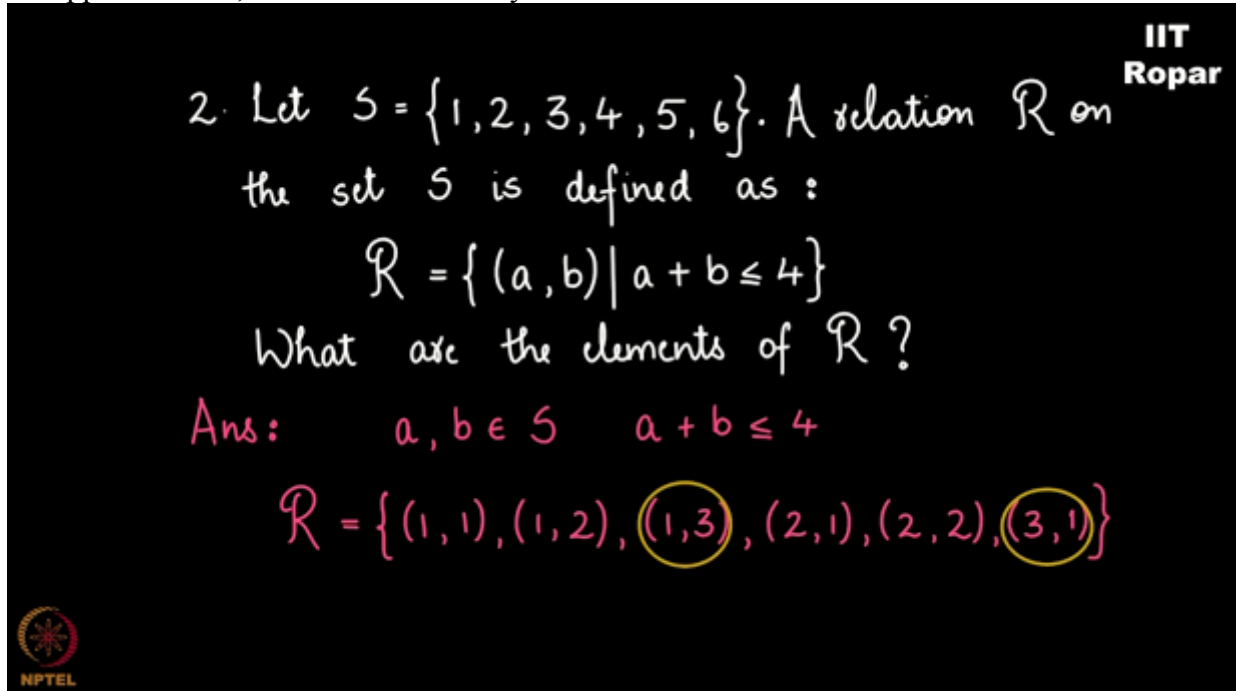 IIT
Ropar
2. Let S = {1, 2, 3, 4, 5, 6}. A relation R on
the set S is defined as :
R = { (a, b) | a + b ≤ 4}
What are the elements of R ?
Ans: a, b ∈ S a + b ≤ 4
R = { (1, 1), (1, 2), (1,3), (2,1), (2, 2), (3,1)}
NPTEL